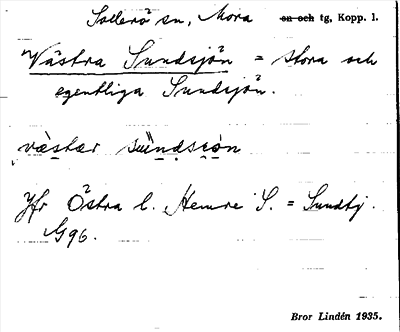 Sollerö sn, Mora sn och tg, Kopp. l.
Västra Sundsjön = stora och
egentliga Sundsjön.
västær
Jfr Östra l. Hemre S. = Sundtj.
G96.
Bror Lindén 1935.